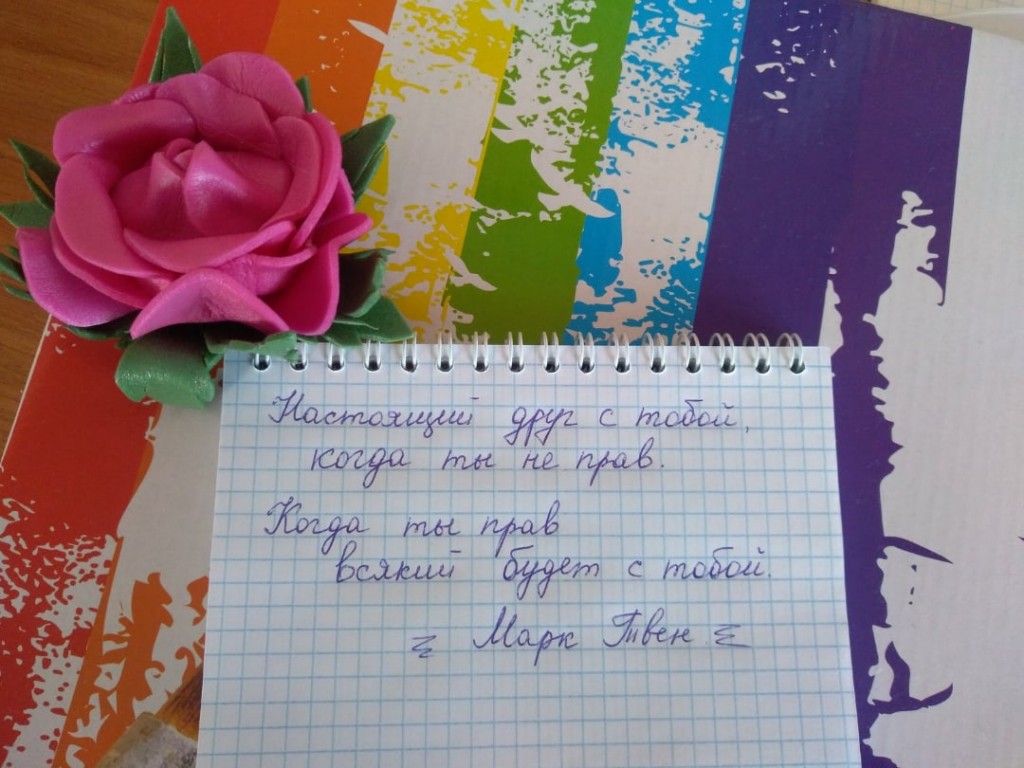 Настоящий друг с тобой,
когда ты не прав.
Когда ты прав
всякий будет с тобой.
Марк Твен